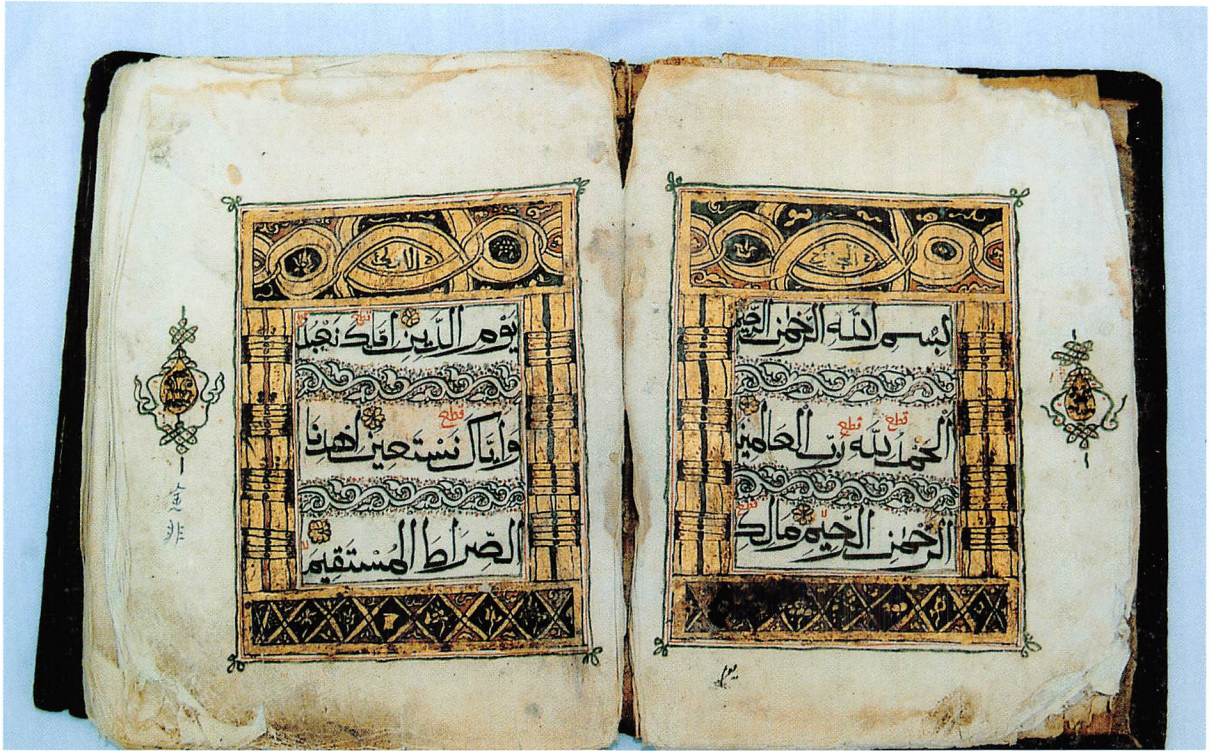 بِسْمِ اللّٰهِ الرَّحْمٰنِ الرَّحِيمِ
اَلْحَمْدُ لِلّٰهِ رَبِّ الْعَالَمِينَ
الرَّحْمٰنِ الرَّحِيمِ مَالِكِ
يَوْمِ الدِّينِ اِيَّاكَ نَعْبُدُ
وَاِيَّاكَ نَسْتَعِينُ اِهْدِنَا
الصِّرَاطَ الْمُسْتَقِيمَ
قطع
قطع
قطع
قطع
قطع